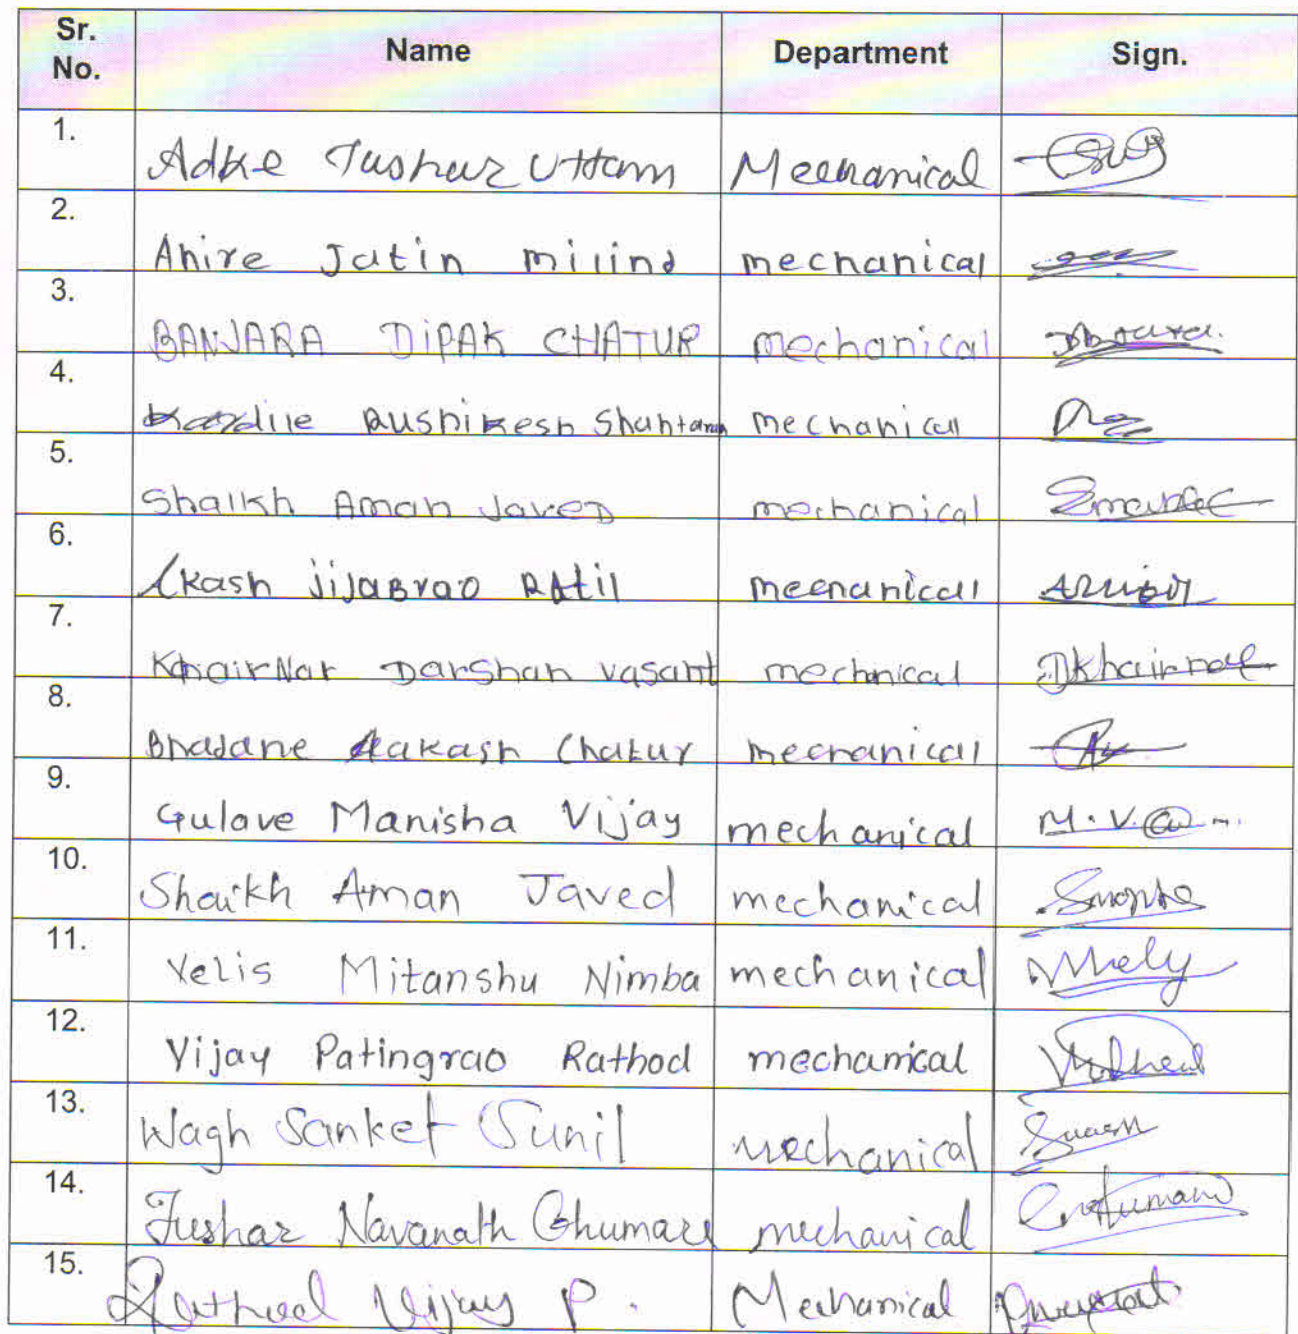 Sr. No. Name Department Sign.
1. Adke Tushar Uttam Mechanical
2. Ahire Jatin milind mechanical
3. BANJARA DiPAK CHATUR mechanical
4. Rushikesh Shantaram mechanical
5. Shaikh Aman JaveD mechanical
6. Akash jiJaBrao PAtil mechanical
7. KhairNar Darshan vasant mechnical Dkhairnar
8. Aakash Chatur mechanical
9. Gulave Manisha Vijay mechanical M.V.G
10. Shaikh Aman Javed mechanical
11. Yelis Mitanshu Nimba mechanical
12. Vijay Patingrao Rathod mechanical
13. Wagh Sanket Sunil mechanical
14. Tushar Navanath Ghumare mechanical
15. Rathod Vijay P. Mechanical